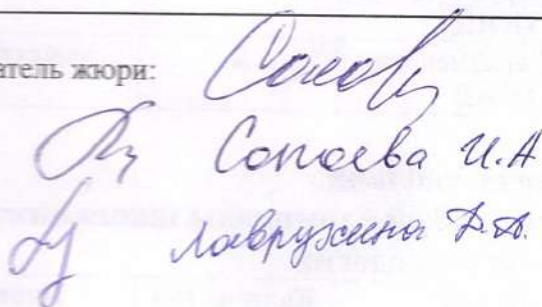 атель жюри:
Сопоева И.А
Лаврухина Д.А.